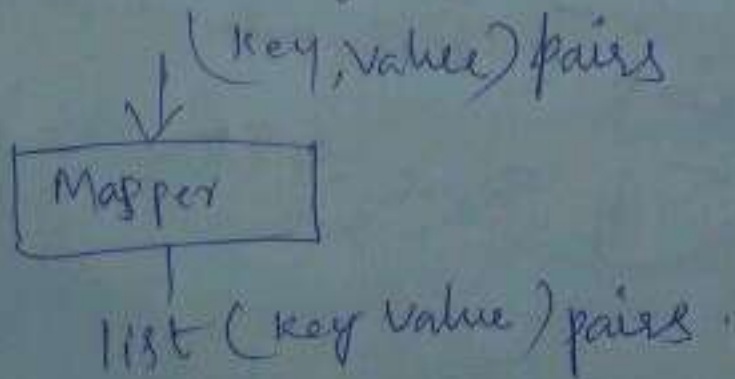 (Key, value) pairs
Mapper
list (key value) pairs.